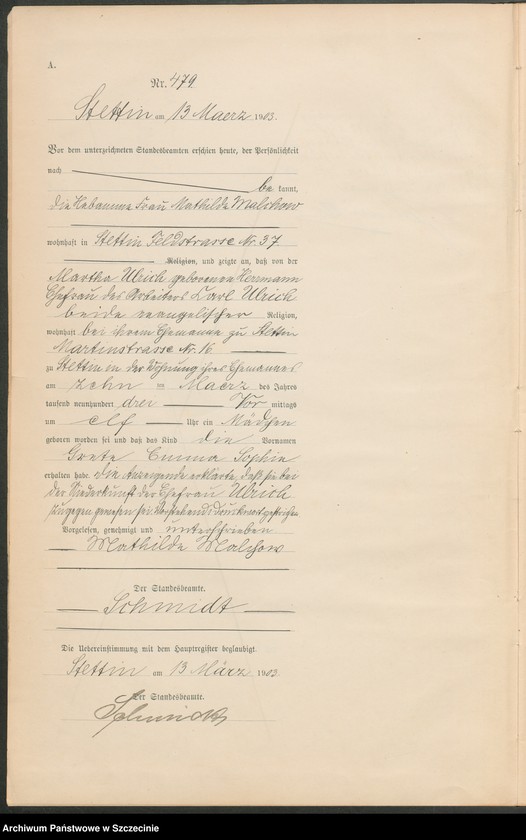 A.
Nr. 479
Stettin am 13 Maerz 1903.
Vor dem unterzeichneten Standesbeamten erschien heute, der Persönlichkeit
nach
be kannt,
die Hebamme Frau Mathilde Malchow
wohnhaft in Stettin Feldstrasse Nr. 37
Religion, und zeigte an, daß von der
Martha Ulrich geborenen Herrmann
Ehefrau des Arbeiters Karl Ulrich
beide evangelischer Religion,
wohnhaft bei ihrem Ehemanne zu Stettin
Martinstrasse Nr. 16
zu Stettin in der Wohnung ihres Ehemannes
am zehn ten Maerz des Jahres
tausend neunhundert drei Vor mittags
um elf Uhr ein Mädchen
geboren worden sei und daß das Kind die Vornamen
Grete Emma Sophie
erhalten habe. Die Anzeigende erklärte, daß sie bei
der Niederkunft der Ehefrau Ulrich
zugegen gewesen sei. Vorstehend 1 Druckwort gestrichen
Vorgelesen, genehmigt und unterschrieben
Mathilde Malchow
Der Standesbeamte.
Schmidt
Die Uebereinstimmung mit dem Hauptregister beglaubigt.
Stettin am 13 März 1903
Der Standesbeamte.
Schmidt
Archiwum Państwowe w Szczecinie